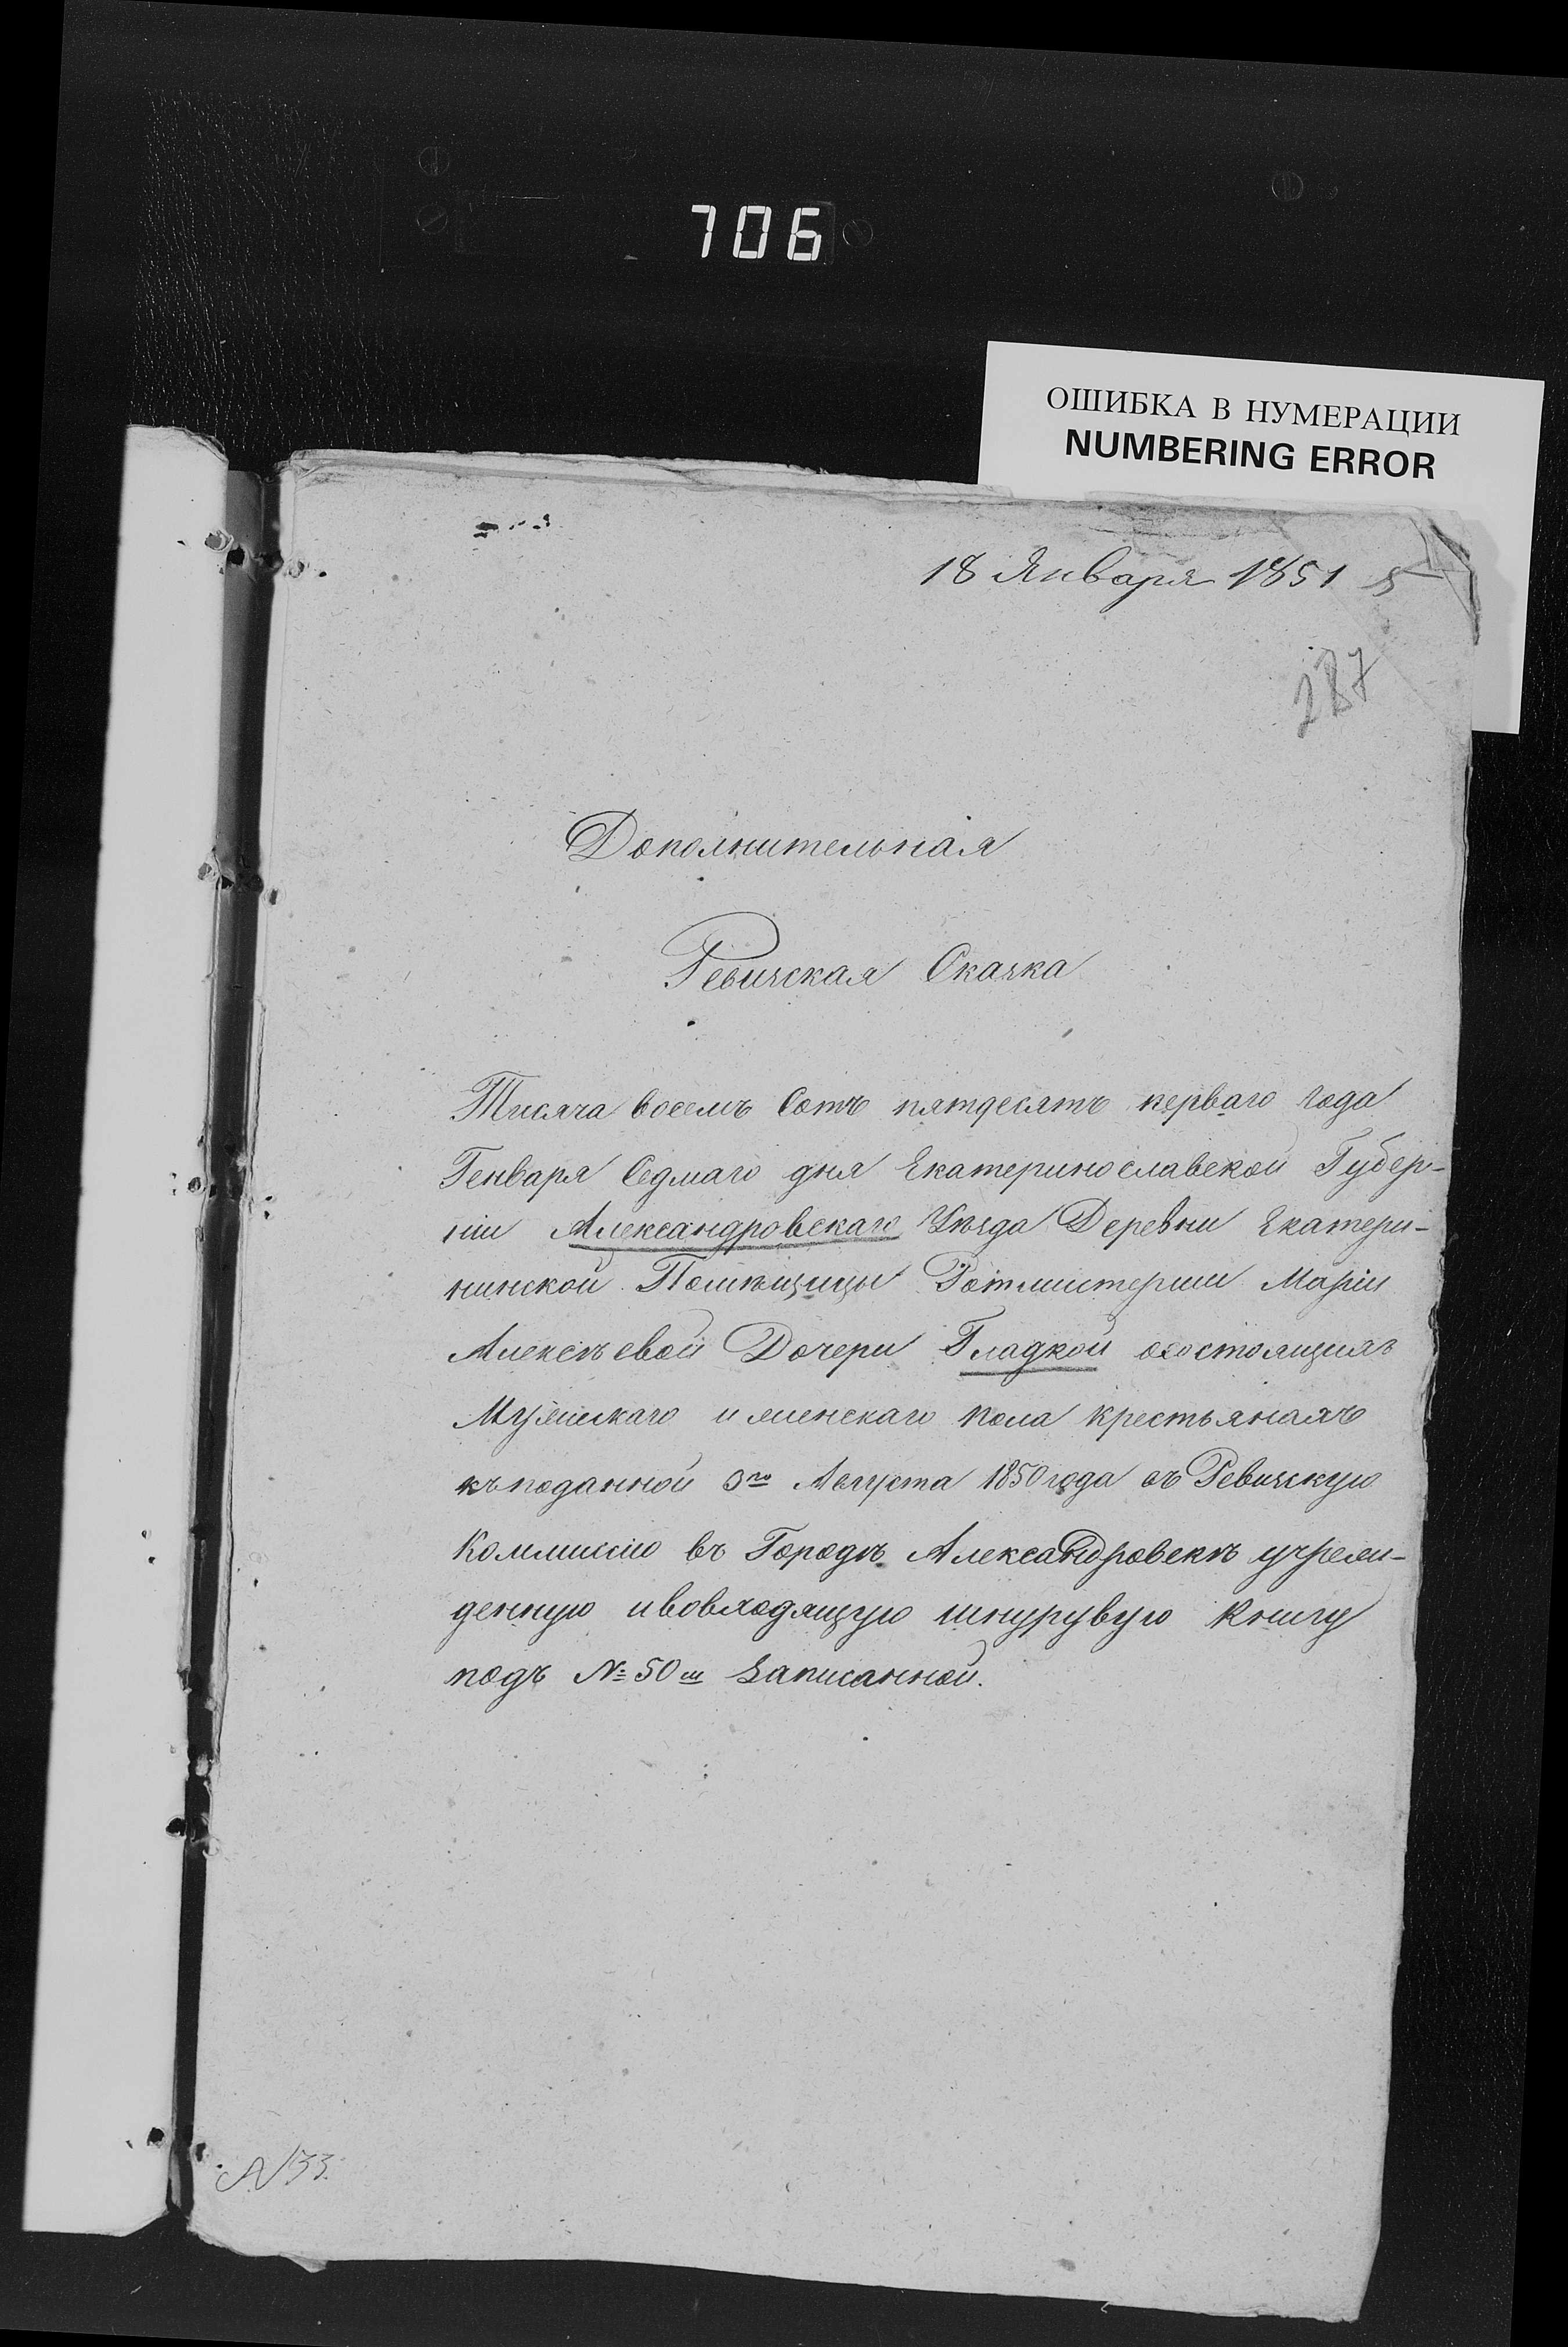 706
ОШИБКА В НУМЕРАЦИИ
NUMBERING ERROR
18 Января 1851 5
287
Дополнительная
Ревизская Сказка
Тисяча восемъ Сотъ пятдесятъ перваго года
Генваря Седмаго дня Екатеринославской Губер-
ніи Александровскаго Уѣзда Деревни Екатери-
нинской Помѣщицы Ротмистерши Маріи
Алексѣевой Дочери Гладкой осостоящихъ
Мужескаго и женскаго пола крестьянахъ
къ поданной 3го Августа 1850 года въ Ревизскую
Коммиссію въ Городѣ Александровскѣ учреж-
денную и вовходящую шнурувую Книгу
подъ №50ш Записанной.
N 33.